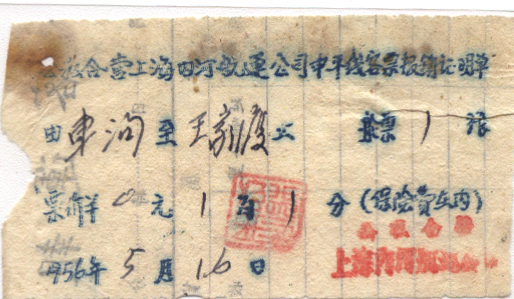 公私合营上海内河航运公司申平线客票报销证明单
由東沟至王家渡止 票1张
票价洋0元1角1分(保险费在内)
公私合营
1956年5月16日
上海内河航运公